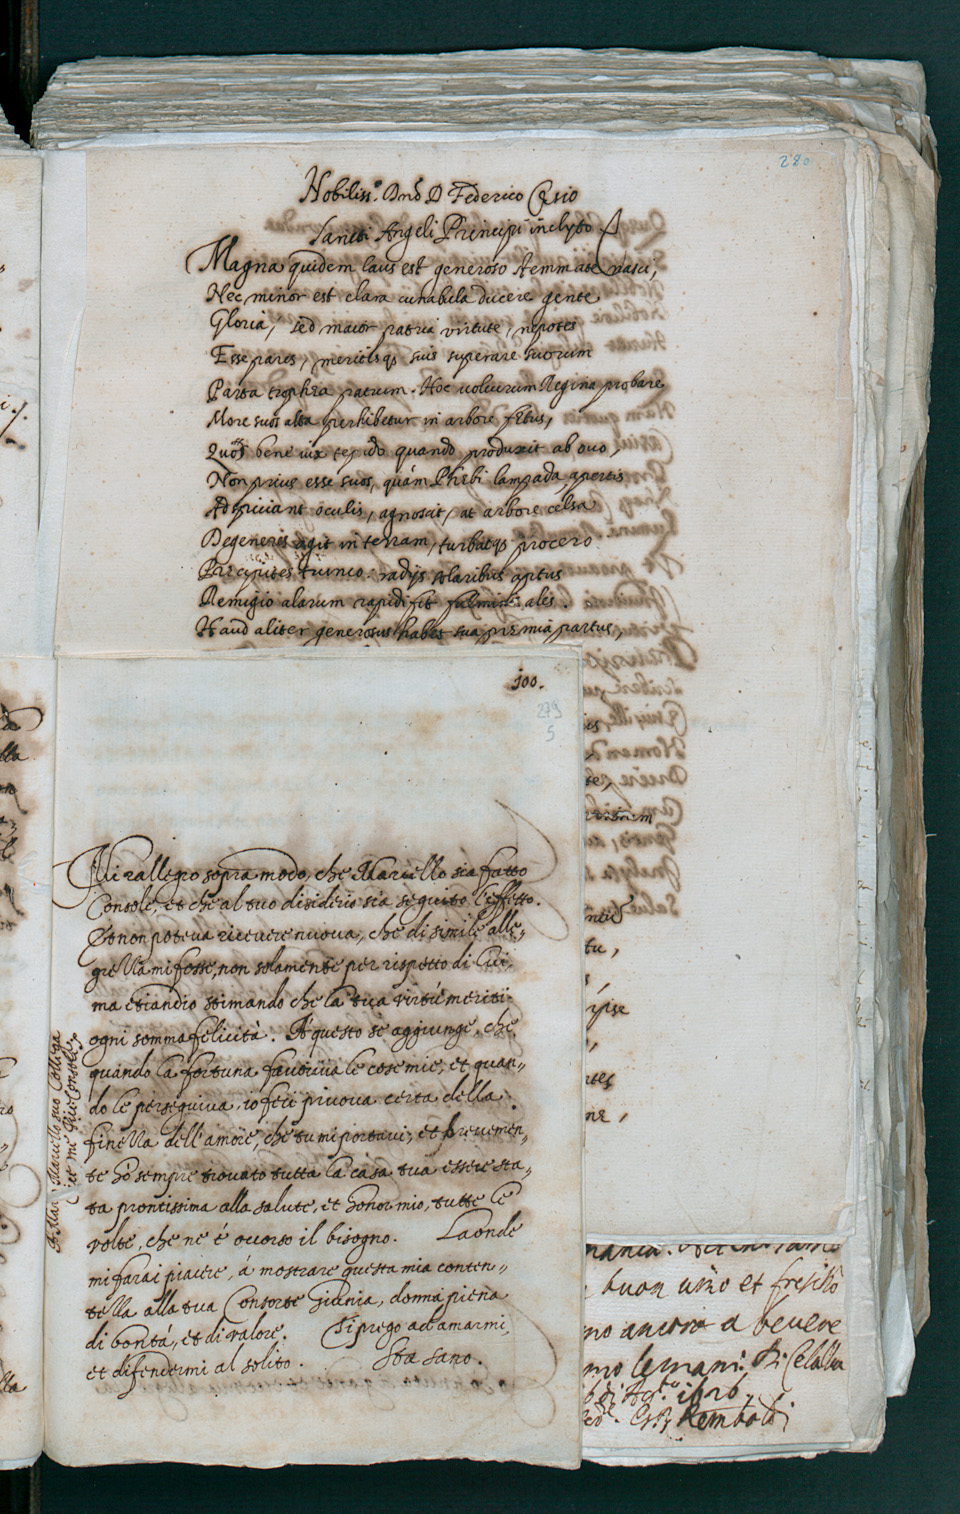 280
Nobiliss.º Dnō D Federico Cęsio
Sancti Angeli Principi inclyto
Magna quidem laus est generoso stemmate nasci,
Nec minor est clara cunabula ducere gente
Gloria, sed maior patria virtute, nepotes
Esse pares, meritisq, suis superare suorum
Parta trophęa patrum. Hoc volucrum Regina probare
More suos alta perhibetur in arbore fętus,
Quos bene vix tepido quando produxit ab ovo,
Non prius esse suos, quám Phębi lampada apertis
Adspiciant oculis, agnoscit, at arbore celsa
Degeneres agit in terram, turbatq, procero
Pręcipites trunco: radijs solaribus aptus
Remigio alarum rapidi fit fulminis ales.
Haud aliter generosus habet sua pręmia partus,
100.
279
5
Mi rallegro sopra modo, che Marcello sia fatto
Console, et che al tuo disiderio sia seguito l'effetto.
Et non poteva ricevere nuova, che di simile alle-
grezza mi fosse, non solamente per rispetto di lui,
ma etiandio stimando che la tua virtú meriti
ogni somma felicità. A questo se aggiunge, che
quando la fortuna favoriva le cose mie, et quan-
do le perseguiva, io feci pruova certa della
finezza dell'amore, che tu mi portavi, et brevemen-
te hò sempre trovato tutta la casa tua essere sta-
ta prontissima alla salute, et honor mio, tutte le
volte, che ne é occorso il bisogno. Laonde
mi farai piacere, á mostrare questa mia conten-
tezza alla tua Consorte Giunia, donna piena
di bontá, et di valore. Ti prego ad amarmi,
et difendermi al solito. Sta sano.
A Mar. Marcello suo Collega
ntu,
ipse
buon vino et fresch
no ancora a bevere
mo le mani. Di
Agto 1626,